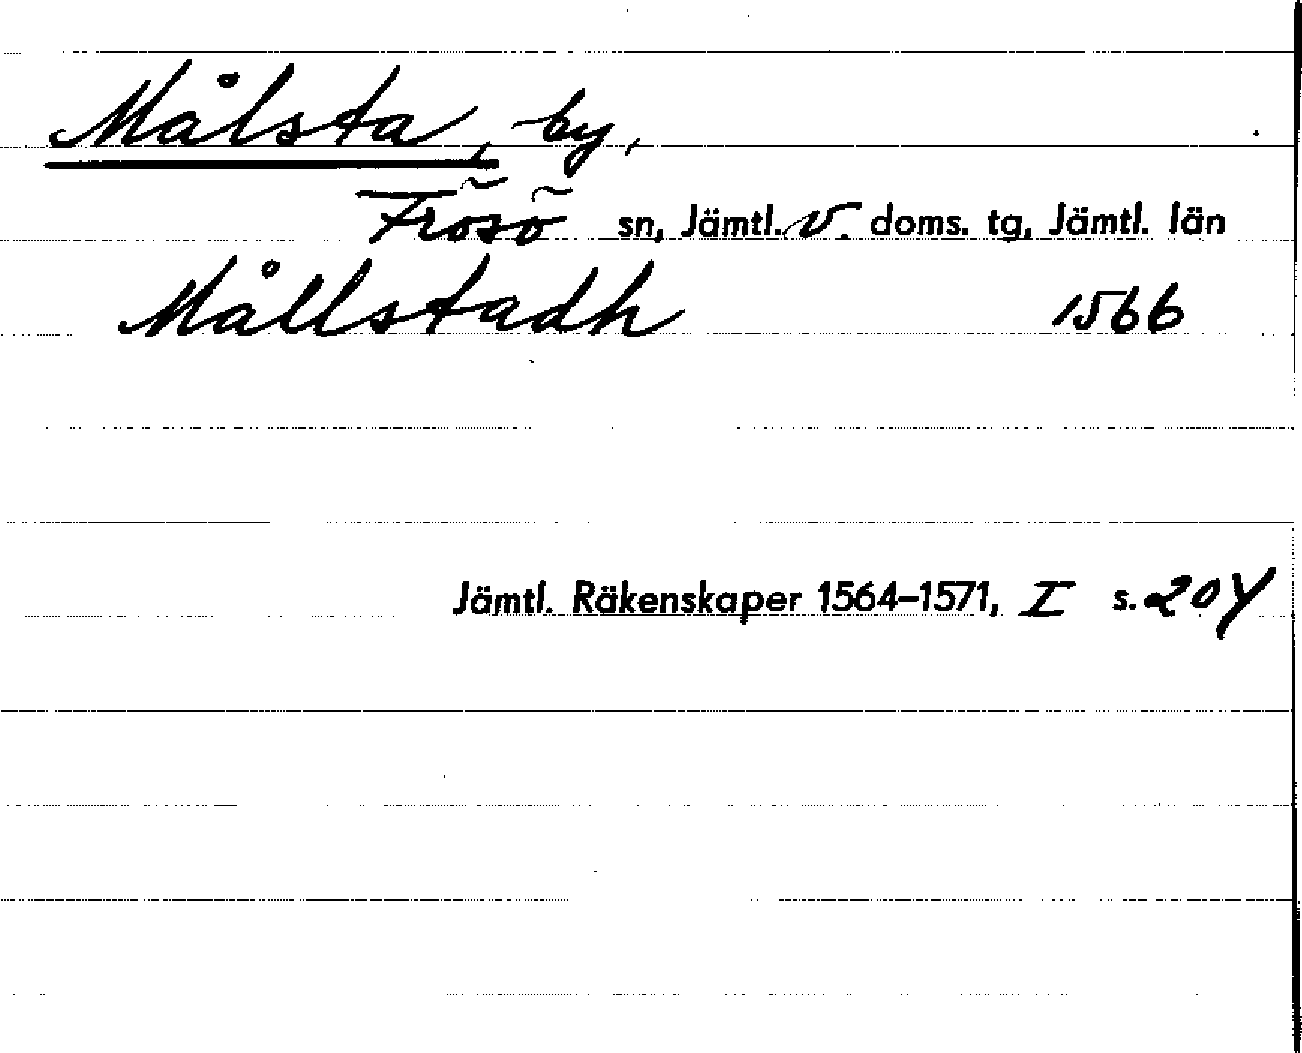 Målsta, by,
Frösö sn, Jämtl. v. doms. tg, Jämtl. län
Mållstadh 1566
Jämtl. Räkenskaper 1564–1571, I s. 204